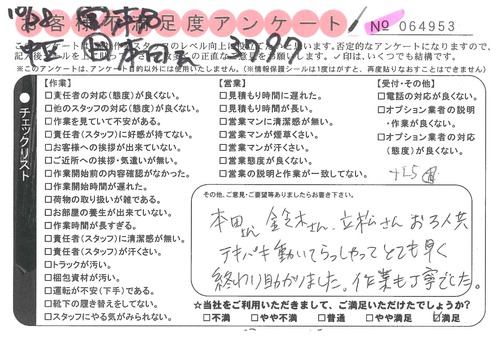 お客様不満足度アンケート
No 064953
※このアンケートは、アンケート目的以外には使用いたしません。(※情報保護シールは1度はがすと、再度貼りなおすことはできません)
チェックリスト
【作業】
□責任者の対応(態度)が良くない。
□他のスタッフの対応(態度)が良くない。
□作業を見ていて不安がある。
□責任者(スタッフ)に好感が持てない。
□お客様への挨拶が出来ていない。
□ご近所への挨拶・気遣いが無い。
□作業開始前の内容確認がなかった。
□作業開始時間が遅れた。
□荷物の取り扱いが雑である。
□お部屋の養生が出来ていない。
□作業時間が長すぎる。
□責任者(スタッフ)に清潔感が無い。
□責任者(スタッフ)が汗くさい。
□トラックが汚い。
□梱包資材が汚い。
□運転が不安(下手)である。
□靴下の履き替えをしてない。
□スタッフにやる気がみられない。
【営業】
□見積もり時間に遅れた。
□見積もり時間が長い。
□営業マンに清潔感が無い。
□営業マンが煙草くさい。
□営業マンが汗くさい。
□営業態度が良くない。
□営業の説明と作業が一致してない。
【受付・その他】
□電話の対応が良くない。
□オプション業者の説明
・作業が良くない。
□オプション業者の対応
(態度)が良くない。
その他、ご意見・ご要望等ありましたらお書き下さい。
本田さん 鈴木さん、立松さん お3人共
テキパキ動いてらっしゃってとても早く
終わり助かりました。作業も丁寧でした。
☆当社をご利用いただきまして、ご満足いただけたでしょうか?
□不満 □やや不満 □普通 □やや満足 ☑満足